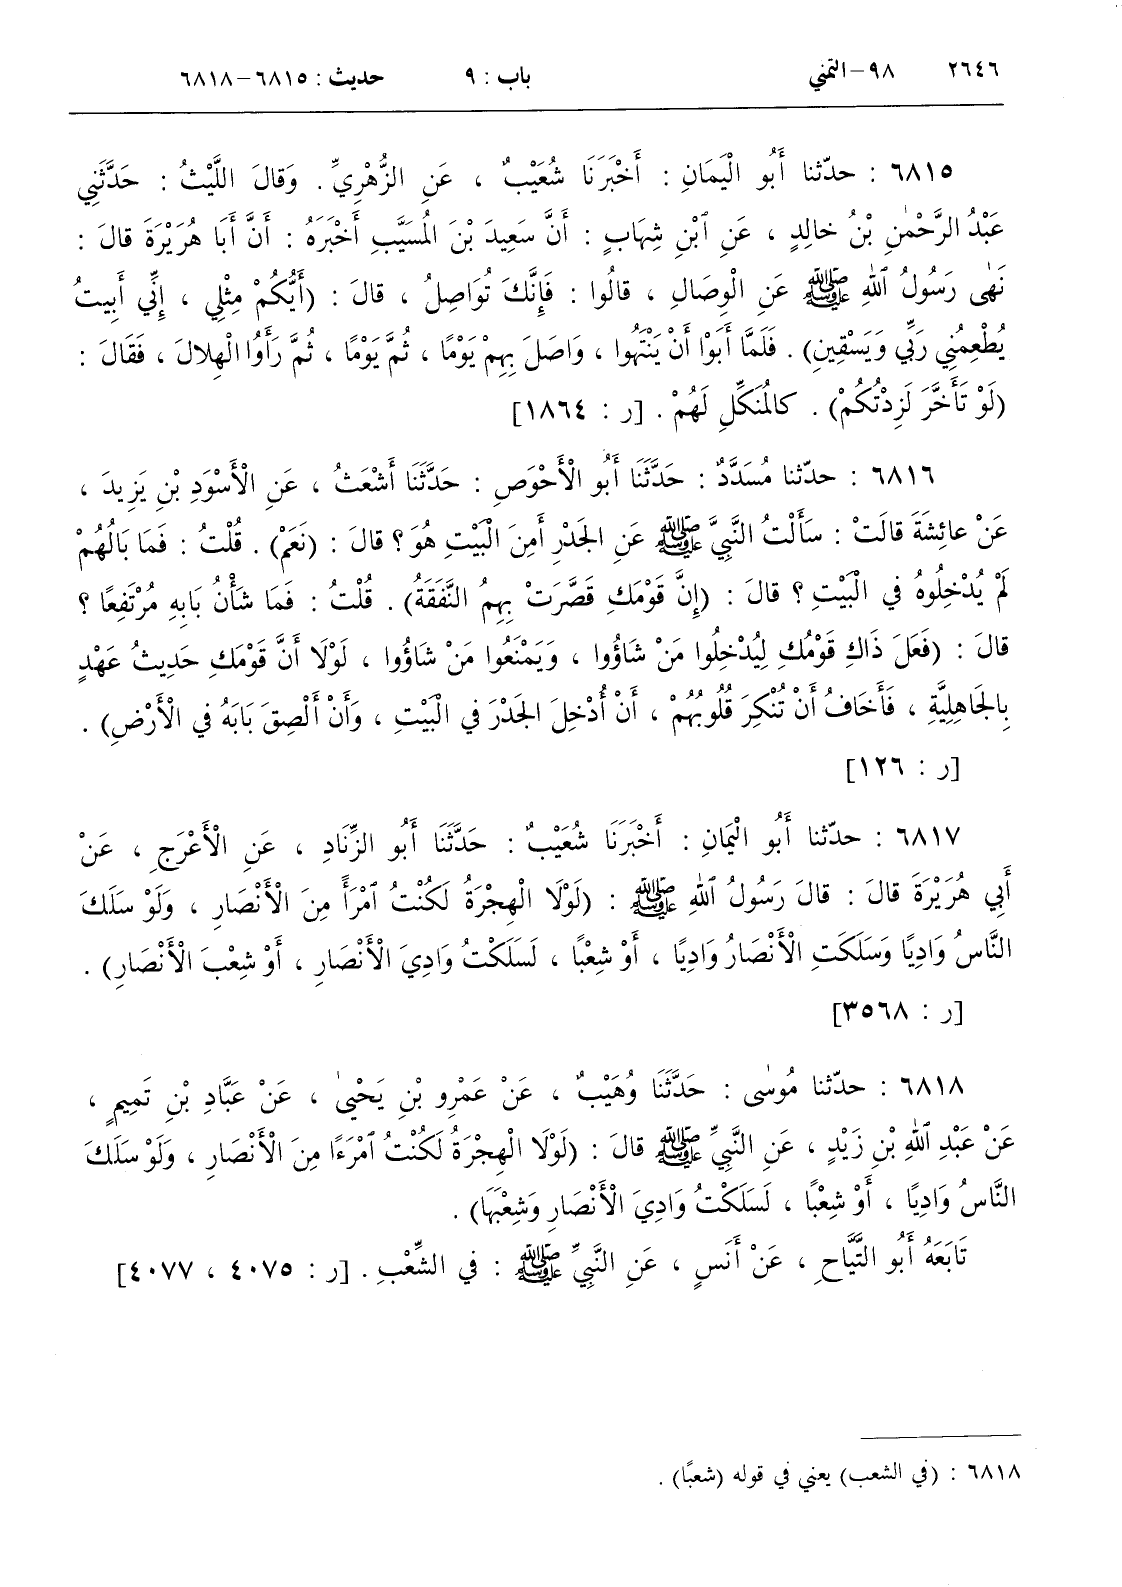 ٢٦٤٦ ٩٨-التمني باب : ٩ حديث : ٦٨١٥-٦٨١٨
٦٨١٥ : حدّثنا أَبُو الْيَمَانِ : أَخْبَرَنَا شُعَيْبٌ ، عَنِ الزُّهْرِيِّ . وَقالَ اللَّيْثُ : حَدَّثَنِي
عَبْدُ الرَّحْمٰنِ بْنُ خالِدٍ ، عَنِ ٱبْنِ شِهَابٍ : أَنَّ سَعِيدَ بْنَ الْمُسَيَّبِ أَخْبَرَهُ : أَنَّ أَبَا هُرَيْرَةَ قالَ :
نَهٰى رَسُولُ ٱللهِ ﷺ عَنِ الْوِصَالِ ، قالُوا : فَإِنَّكَ تُوَاصِلُ ، قالَ : (أَيُّكُمْ مِثْلِي ، إِنِّي أَبِيتُ
يُطْعِمُنِي رَبِّي وَيَسْقِينِ) . فَلَمَّا أَبَوْا أَنْ يَنْتَهُوا ، وَاصَلَ بِهِمْ يَوْمًا ، ثُمَّ يَوْمًا ، ثُمَّ رَأَوُا الْهِلَالَ ، فَقَالَ :
(لَوْ تَأَخَّرَ لَزِدْتُكُمْ) . كالْمُنَكِّلِ لَهُمْ . [ر : ١٨٦٤]
٦٨١٦ : حدّثنا مُسَدَّدٌ : حَدَّثَنَا أَبُو الْأَحْوَصِ : حَدَّثَنَا أَشْعَثُ ، عَنِ الْأَسْوَدِ بْنِ يَزِيدَ ،
عَنْ عائِشَةَ قالَتْ : سَأَلْتُ النَّبِيَّ ﷺ عَنِ الجَدْرِ أَمِنَ الْبَيْتِ هُوَ ؟ قالَ : (نَعَمْ) . قُلْتُ : فَمَا بَالُهُمْ
لَمْ يُدْخِلُوهُ في الْبَيْتِ ؟ قالَ : (إِنَّ قَوْمَكِ قَصَّرَتْ بِهِمُ النَّفَقَةُ) . قُلْتُ : فَمَا شَأْنُ بَابِهِ مُرْتَفِعًا ؟
قالَ : (فَعَلَ ذَاكِ قَوْمُكِ لِيُدْخِلُوا مَنْ شَاؤُوا ، وَيَمْنَعُوا مَنْ شَاؤُوا ، لَوْلَا أَنَّ قَوْمَكِ حَدِيثُ عَهْدٍ
بِالجَاهِلِيَّةِ ، فَأَخَافُ أَنْ تُنْكِرَ قُلُوبُهُمْ ، أَنْ أُدْخِلَ الجَدْرَ في الْبَيْتِ ، وَأَنْ أَلْصِقَ بَابَهُ في الْأَرْضِ) .
[ر : ١٢٦]
٦٨١٧ : حدّثنا أَبُو الْيَمَانِ : أَخْبَرَنَا شُعَيْبٌ : حَدَّثَنَا أَبُو الزِّنَادِ ، عَنِ الْأَعْرَجِ ، عَنْ
أَبِي هُرَيْرَةَ قالَ : قالَ رَسُولُ ٱللهِ ﷺ : (لَوْلَا الْهِجْرَةُ لَكُنْتُ ٱمْرَأً مِنَ الْأَنْصَارِ ، وَلَوْ سَلَكَ
النَّاسُ وَادِيًا وَسَلَكَتِ الْأَنْصَارُ وَادِيًا ، أَوْ شِعْبًا ، لَسَلَكْتُ وَادِيَ الْأَنْصَارِ ، أَوْ شِعْبَ الْأَنْصَارِ) .
[ر : ٣٥٦٨]
٦٨١٨ : حدّثنا مُوسٰى : حَدَّثَنَا وُهَيْبٌ ، عَنْ عَمْرِو بْنِ يَحْيىٰ ، عَنْ عَبَّادِ بْنِ تَمِيمٍ ،
عَنْ عَبْدِ ٱللهِ بْنِ زَيْدٍ ، عَنِ النَّبِيِّ ﷺ قالَ : (لَوْلَا الْهِجْرَةُ لَكُنْتُ ٱمْرَءًا مِنَ الْأَنْصَارِ ، وَلَوْ سَلَكَ
النَّاسُ وَادِيًا ، أَوْ شِعْبًا ، لَسَلَكْتُ وَادِيَ الْأَنْصَارِ وَشِعْبَهَا) .
تَابَعَهُ أَبُو التَّيَّاحِ ، عَنْ أَنَسٍ ، عَنِ النَّبِيِّ ﷺ : في الشِّعْبِ . [ر : ٤٠٧٥ ، ٤٠٧٧]
٦٨١٨ : (في الشعب) يعني في قوله (شعبًا) .